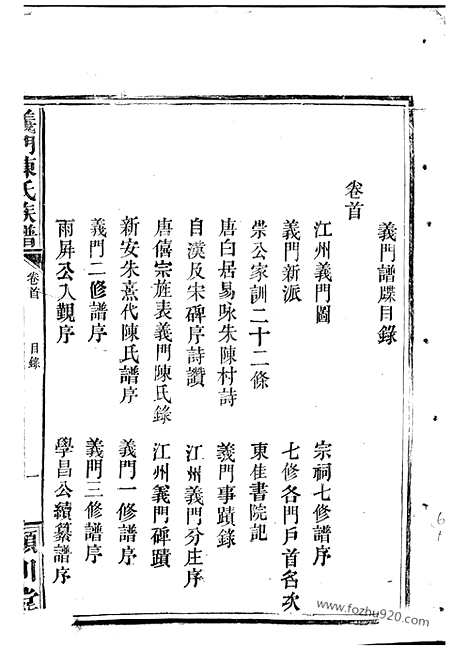 義門譜牒目錄
卷首
江州義門圖　宗祠七修譜序
義門新派　七修各門戶首名次
崇公家訓二十二條　東佳書院記
唐白居易咏朱陳村詩　義門事蹟錄
自漢及宋碑序詩讚　江州義門分庄序
唐僖宗旌表義門陳氏錄　江州義門碑蹟
新安朱熹代陳氏譜序　義門一修譜序
義門二修譜序　義門三修譜序
雨屏公入覲序　學昌公續纂譜序
義門陳氏族譜　卷首　目錄　一　潁川堂
www.fozhu920.com